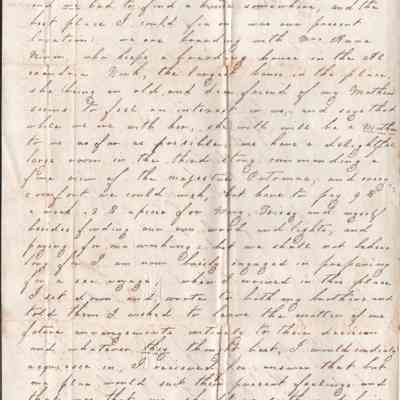 and we had to find a home somewhere, and the
best place I could fix on was our present
location: we are boarding with Mrs Anna
who keeps a boarding house in the Al
exandria the largest house in the place,
she being an old and dear friend of my Mother
seems to feel an interest in us, and says that
while we are with her, she will be a Mother
to us as far as possible, we have a delightful
large room in the third story commanding a
fine view of the majestic Potomac, and every
comfort we could wish, but have to pay
a week, apiece for Mary, and myself
besides finding our own wood and lights, and
paying for our washing; but we shall not
long for I am now busily engaged in preparing
for a sea voyage; when I arrived in this place
I set down and wrote to both my brothers and
told them I wished to leave the matter of our
future arrangements entirely to their decision
and whatever they thought best, I would
in, I received for answer that
my plan would suit their present feelings and